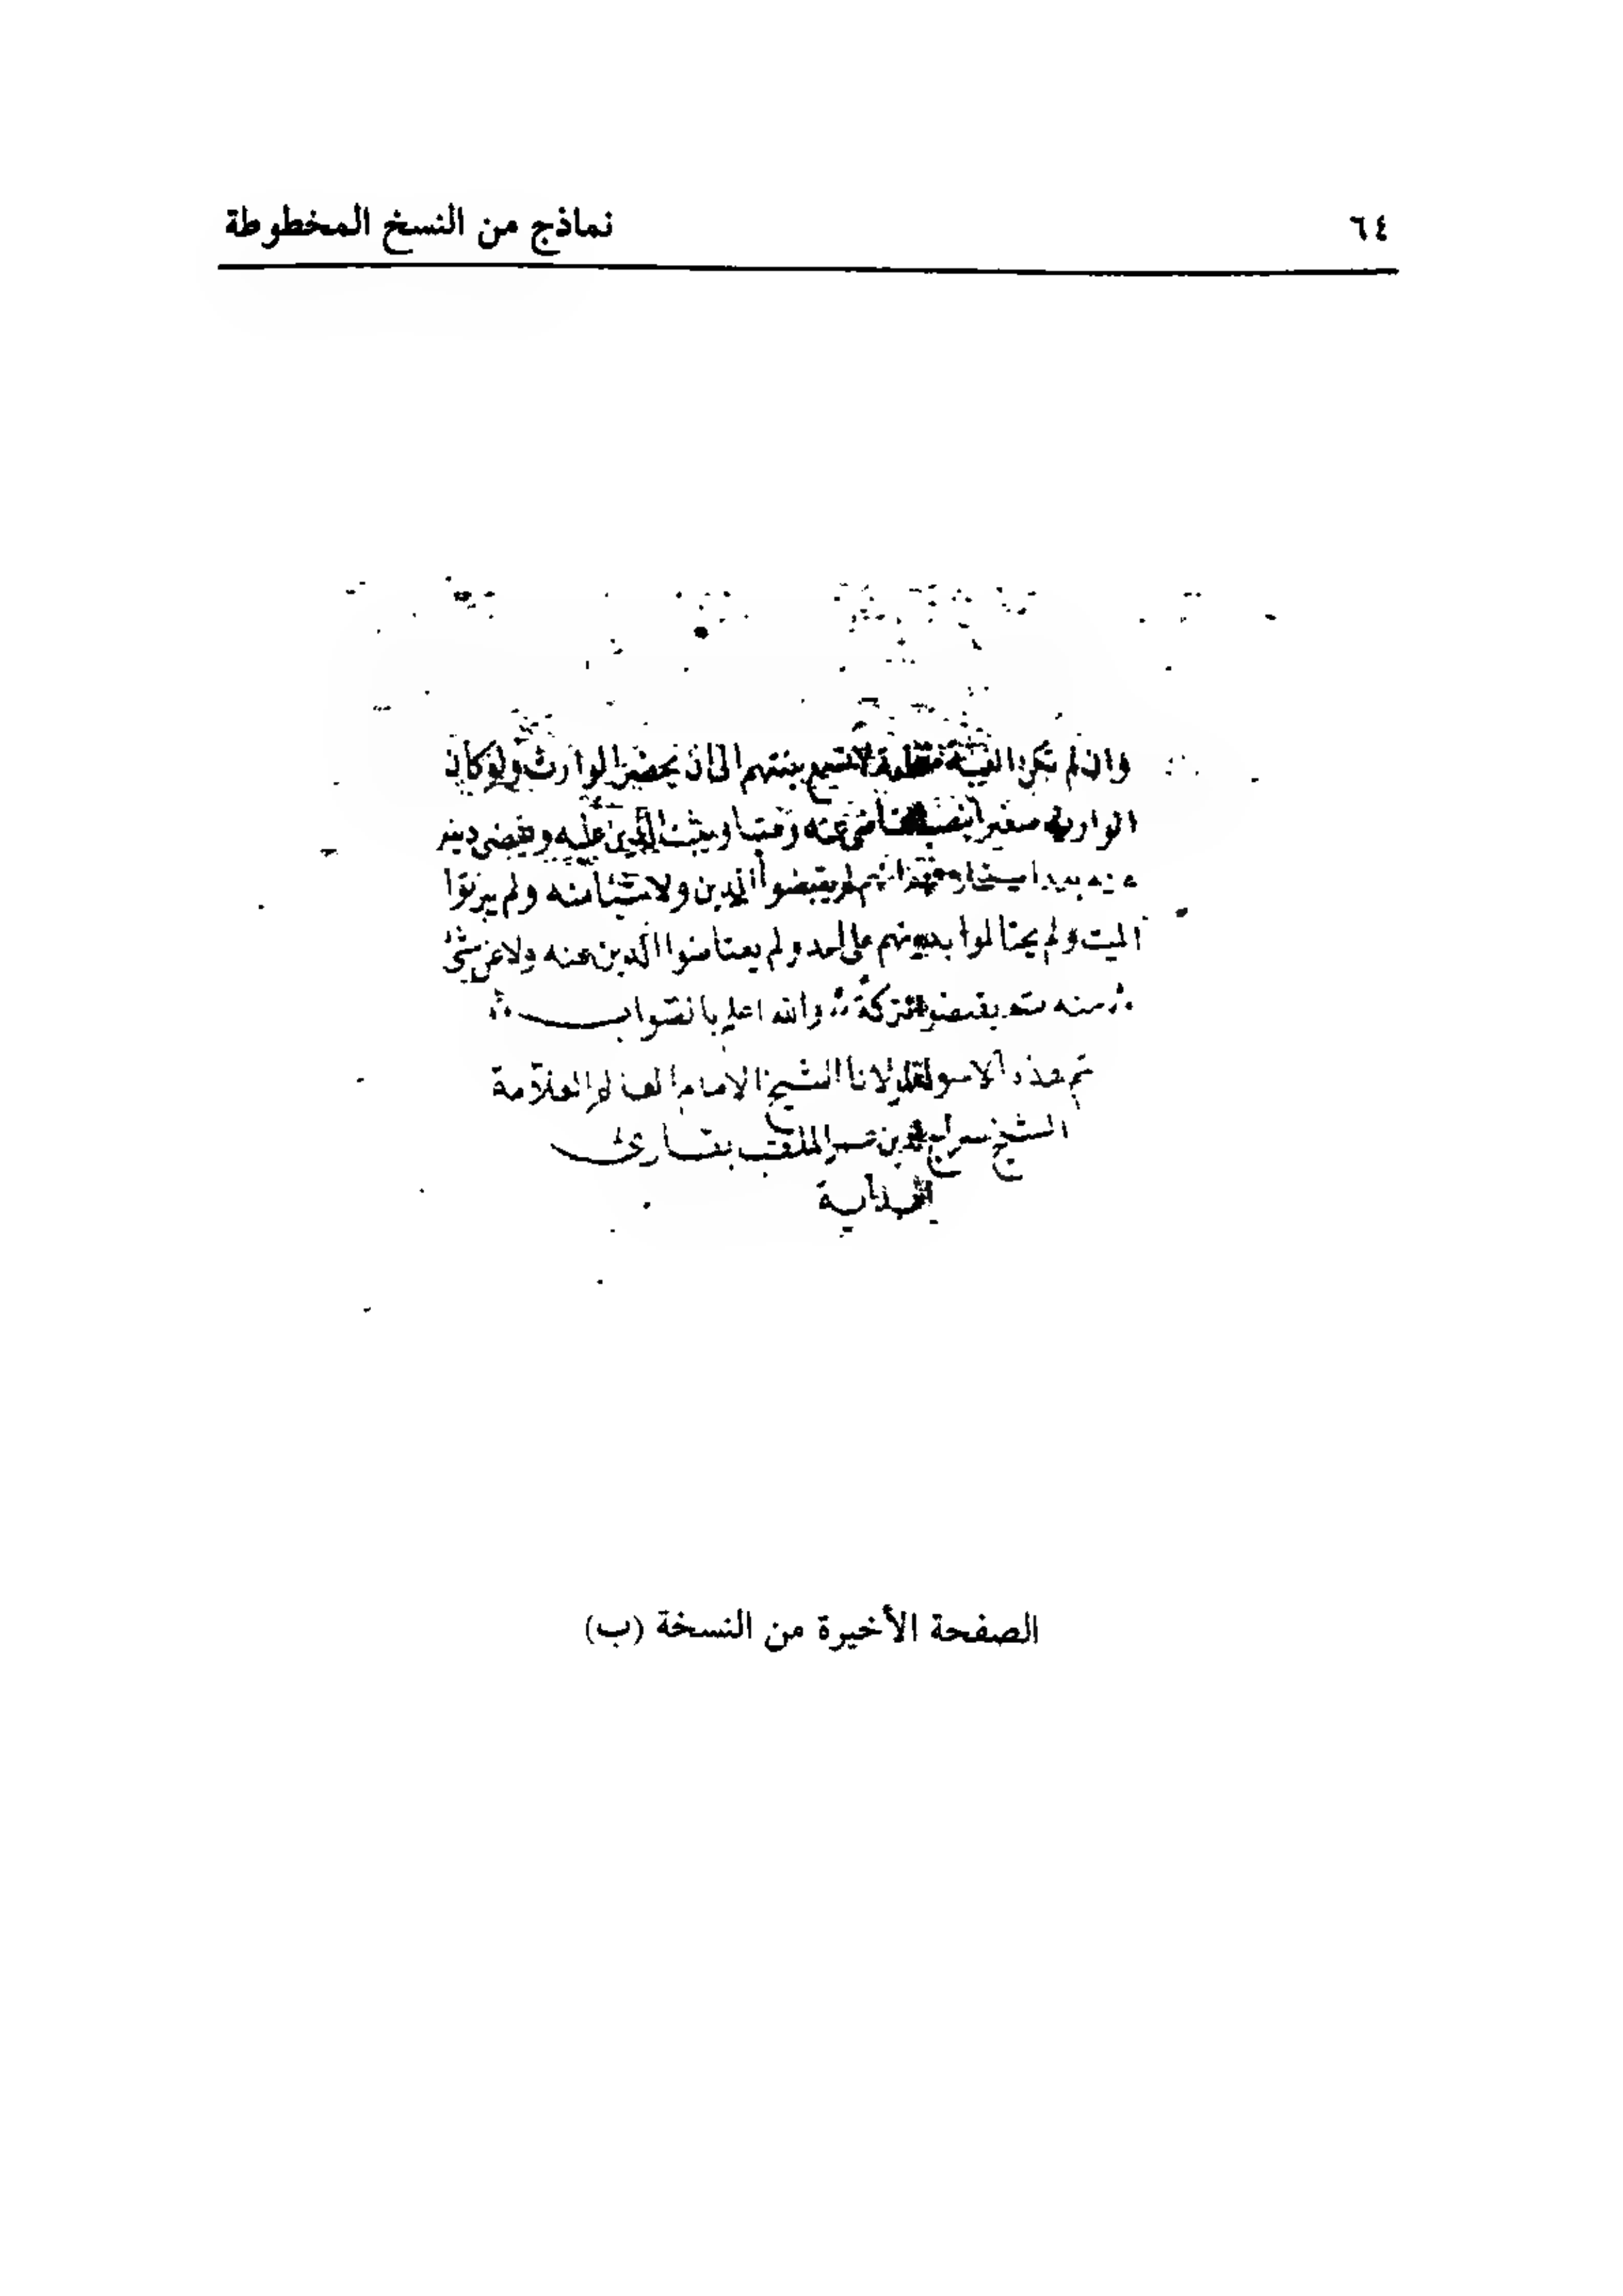 ٦٤ نماذج من النسخ المخطوطة
وان لم تكن الغيبة منقطعة لا تسمع بينتهم الى ان يحضر الوارث ولو كان
الوارث صغيرا ينصب القاضي عنه وقتا ويثبت الدين عليه ويقضي دينه
انهم لم يقبضوا الدين ولا شيئا منه ولم يبرئوا
الميت ولم يحتالوا بديونهم على احد ولم يعتاضوا الدين عنه ولا عن شئ
منه يقبضوا التركة والله اعلم بالصواب
تم هذه الاسولة لمولانا الشيخ الامام العالم العلامة
الشيخ سراج الدين عمر الملقب بقارئ
الهداية
الصفحة الأخيرة من النسخة (ب)